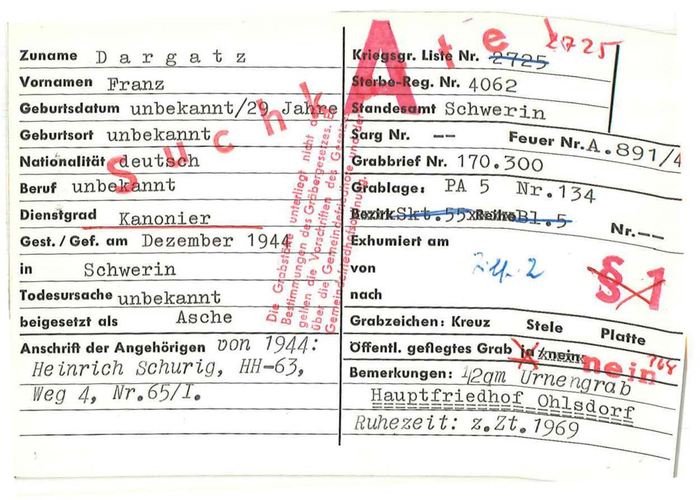 Suchkarte!
A
Zuname Dargatz
Vornamen Franz
Geburtsdatum unbekannt/29 Jahre
Geburtsort unbekannt
Nationalität deutsch
Beruf unbekannt
Dienstgrad Kanonier
Gest./Gef. am Dezember 1944
in Schwerin
Todesursache unbekannt
beigesetzt als Asche
Anschrift der Angehörigen von 1944:
Heinrich Schurig, HH-63,
Weg 4, Nr.65/I.
Die Grabstätte unterliegt nicht den
Bestimmungen des Gräbergesetzes. Es
gelten die Vorschriften des Gesetzes
über die Gemeindefriedhöfe und der
Gemeindefriedhofsordnung.
Kriegsgr. Liste Nr. 2725 2725
Sterbe-Reg. Nr. 4062
Standesamt Schwerin
Sarg Nr. -- Feuer Nr. A.891/4
Grabbrief Nr. 170.300
Grablage: PA 5 Nr.134
Bezirk Skt.55 Reihe Bl.5 Nr.--
Exhumiert am
von
nach
§ 1
Grabzeichen: Kreuz Stele Platte
Öffentl. gepflegtes Grab ja / nein nein
Bemerkungen: 1/2qm Urnengrab
Hauptfriedhof Ohlsdorf
Ruhezeit: z.Zt. 1969